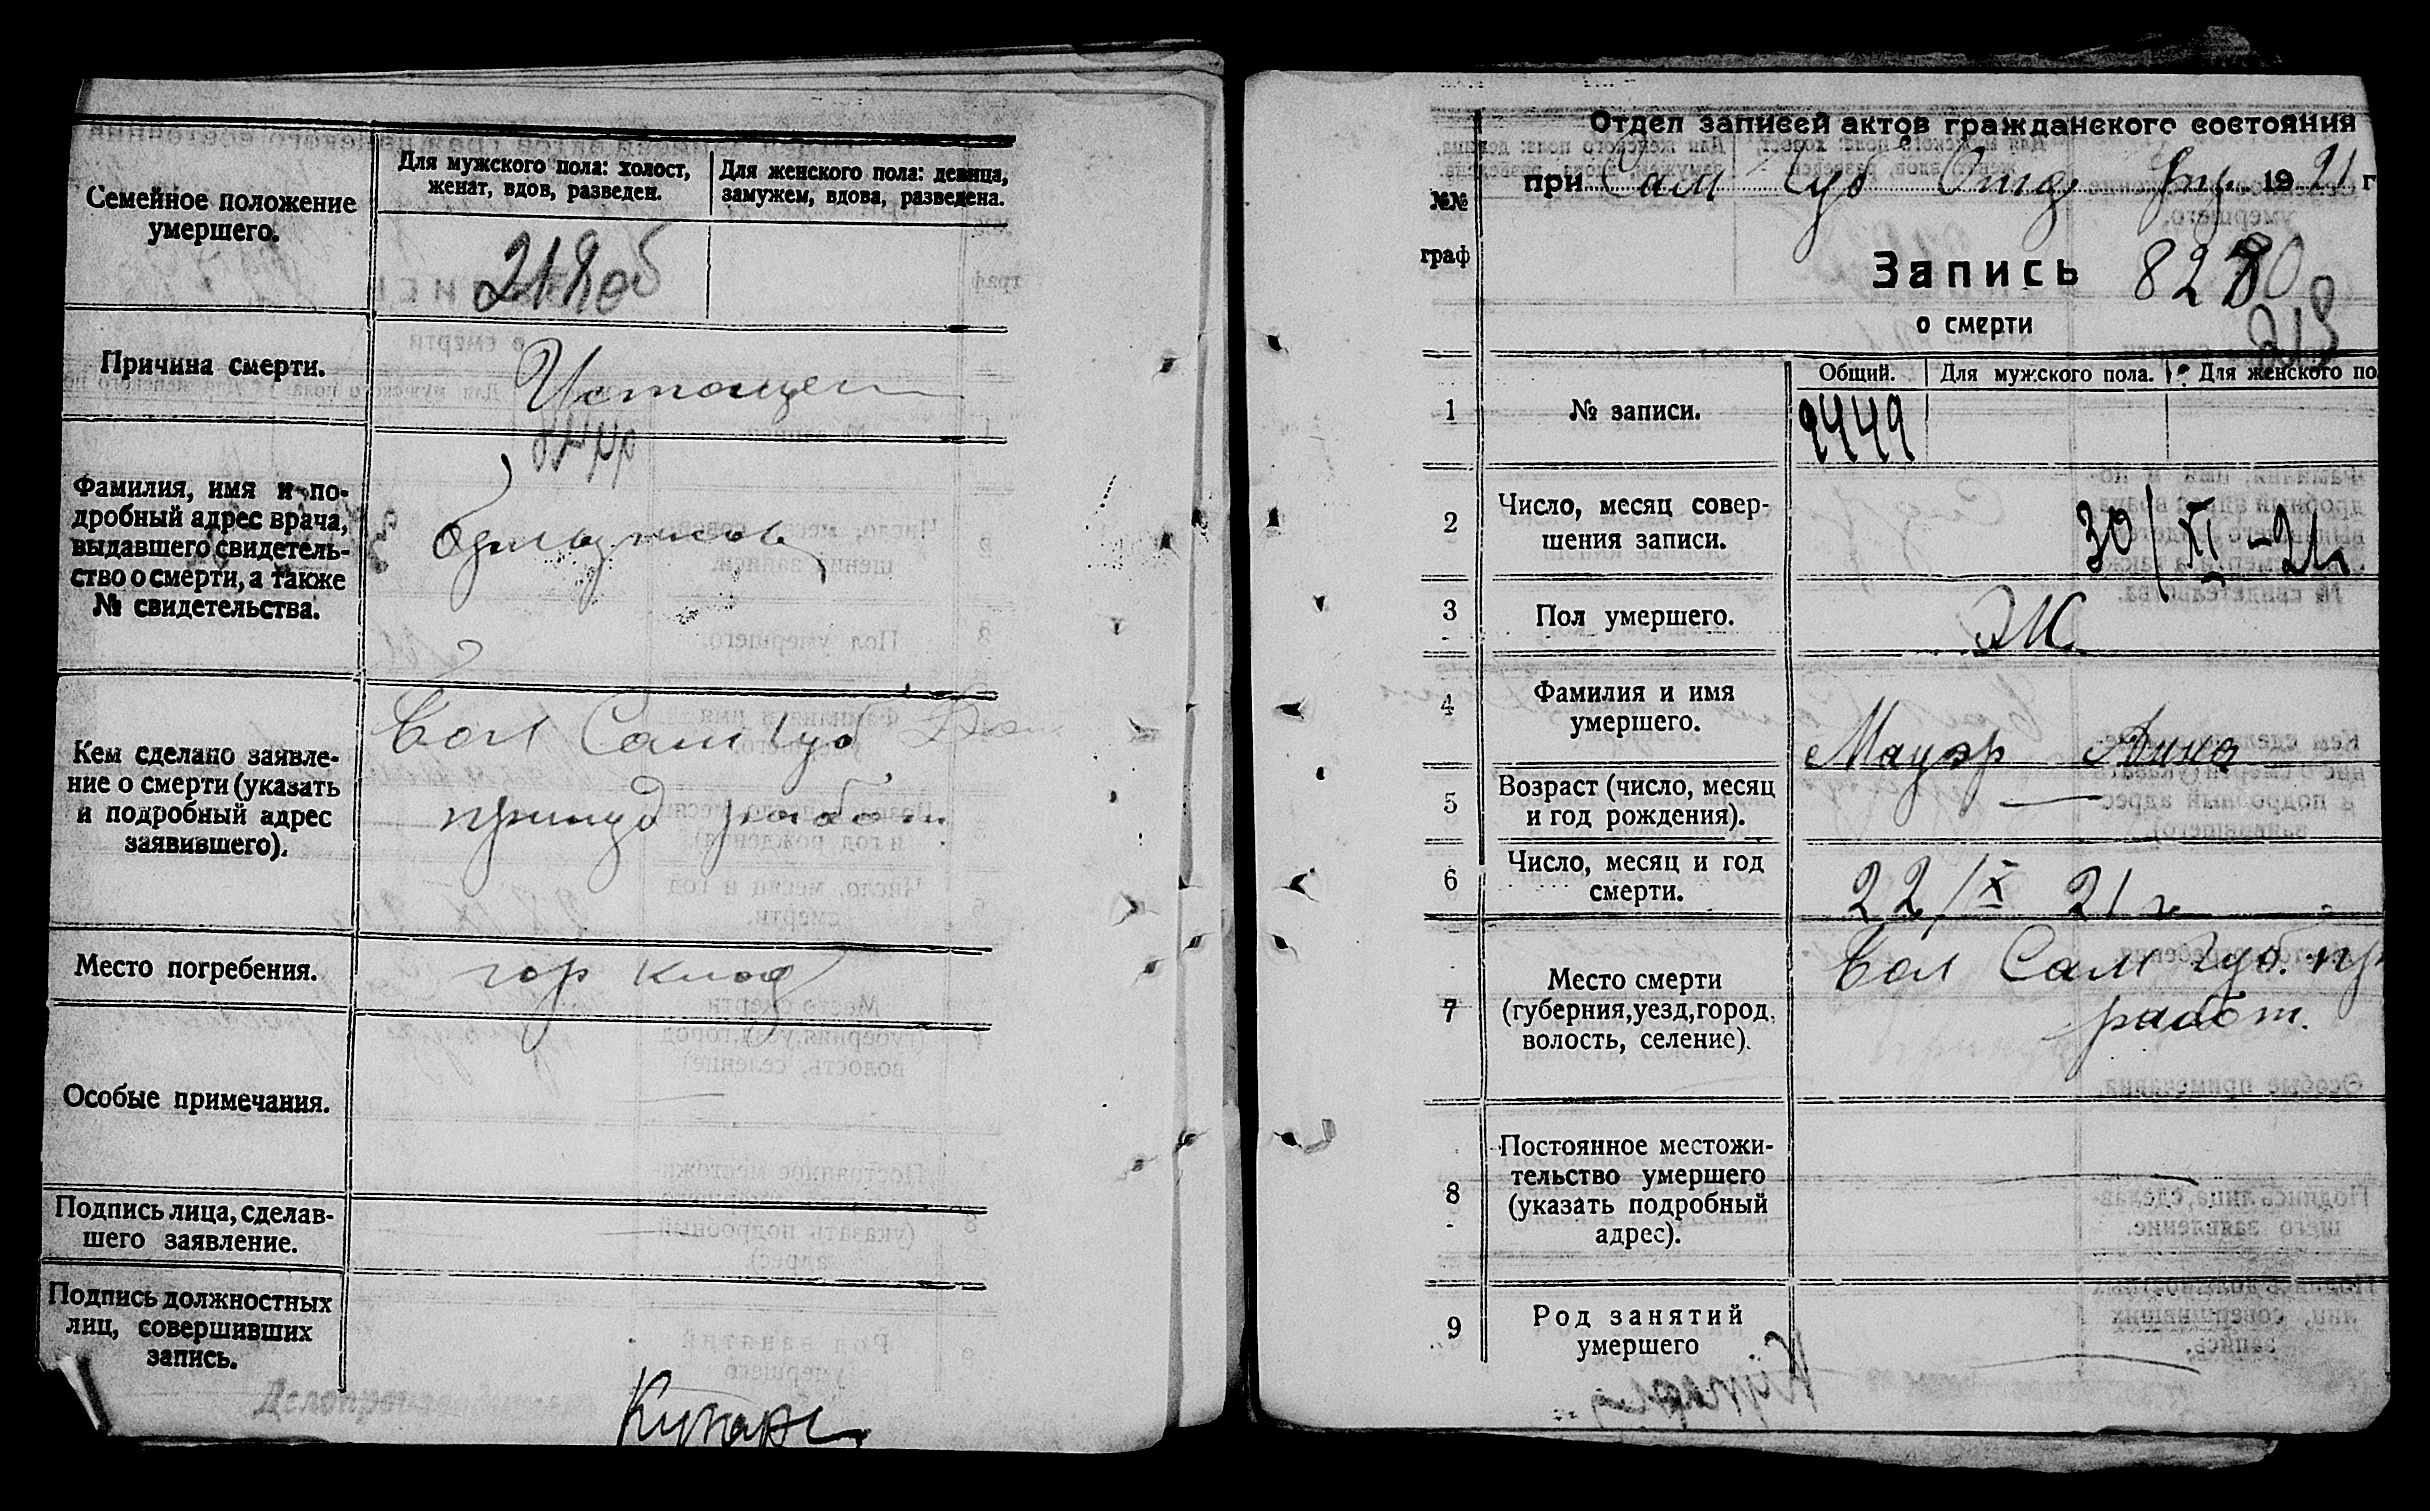 Семейное положение
умершего.
Для мужского пола: холост,
женат, вдов, разведен.
Для женского пола: девица,
замужем, вдова, разведена.
218об
Причина смерти.
Истощен
Фамилия, имя и по-
дробный адрес врача,
выдавшего свидетель-
ство о смерти, а также
№ свидетельства.
Кем сделано заявле-
ние о смерти (указать
и подробный адрес
заявившего).
Бол Сам Губ
принуд работ.
Место погребения.
гор клад
Особые примечания.
Подпись лица, сделав-
шего заявление.
Подпись должностных
лиц, совершивших
запись.
Делопроизводитель
Отдел записей актов гражданского состояния
при Сам Губ Отд Упр. 1921 г
№№
граф
Запись 8280
о смерти
218
Общий. Для мужского пола. Для женского по
1 № записи. 9449
2 Число, месяц совер-
шения записи.
30/XI-21
3 Пол умершего. Ж
4 Фамилия и имя
умершего.
Мауэр Анна
5 Возраст (число, месяц
и год рождения). —
6 Число, месяц и год
смерти.
22/X 21 г
7 Место смерти
(губерния, уезд, город,
волость, селение).
Бол Сам Губ. пр
работ.
8 Постоянное местожи-
тельство умершего
(указать подробный
адрес).
—
9 Род занятий
умершего
—